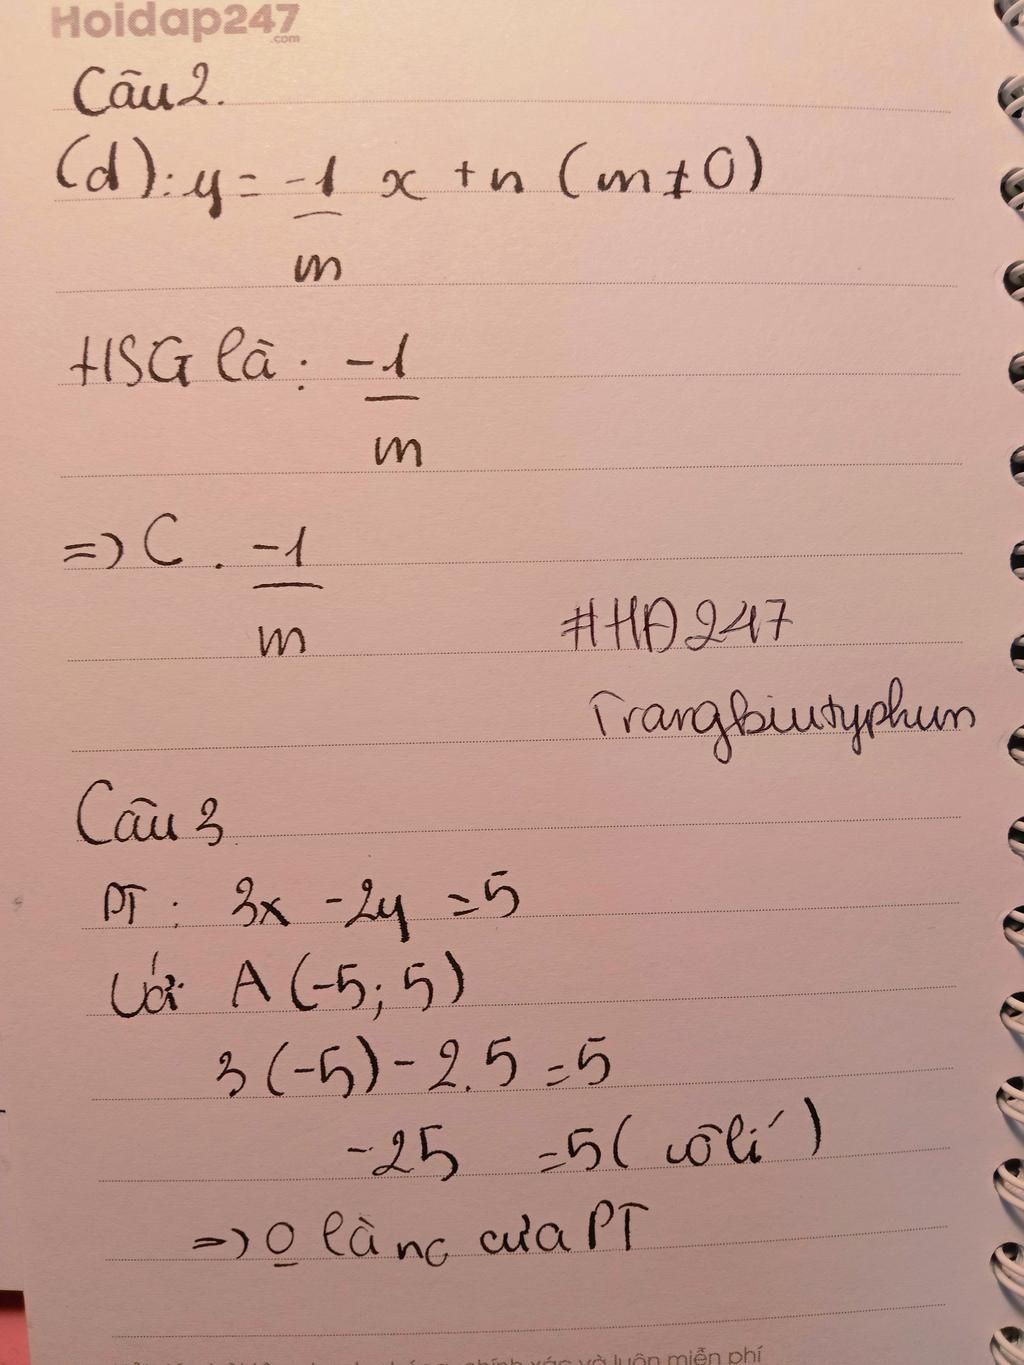 Hoidap247
.com
Câu 2.
(d): y = -1/m x + n (m ≠ 0)
HSG là: -1/m
=> C. -1/m
#HĐ247
Trangbiutyphun
Câu 3
PT: 3x - 2y = 5
Với A (-5; 5)
3(-5) - 2.5 = 5
-25 = 5 (vô lí)
=> O là no của PT
chính xác và luôn miễn phí